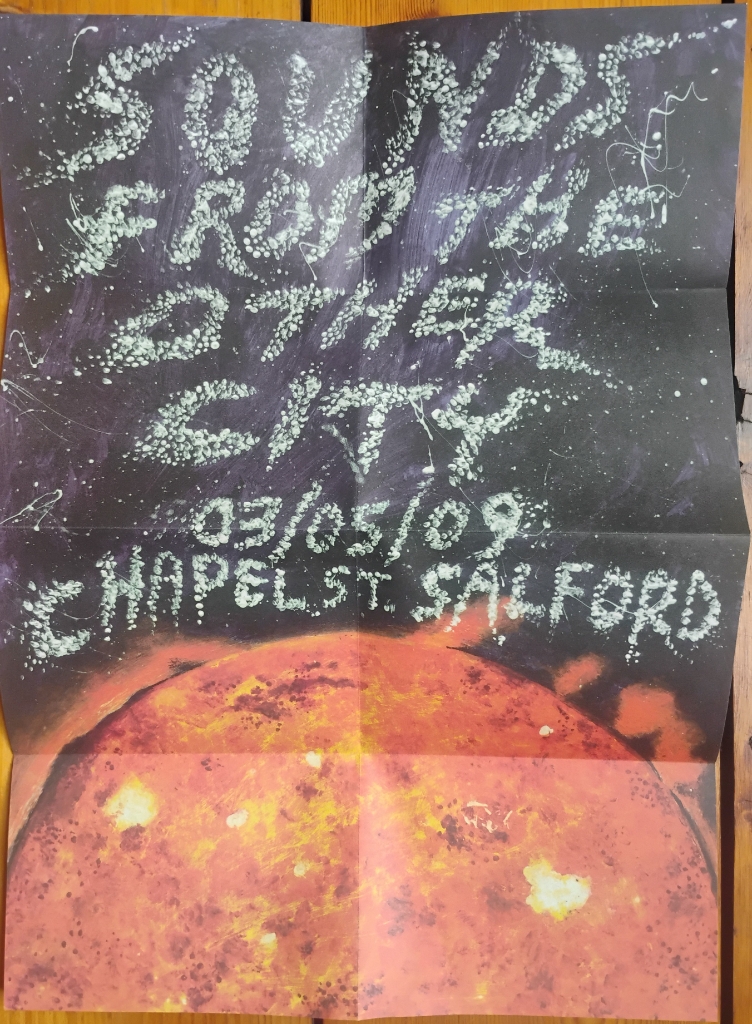 SOUNDS
FROM THE
OTHER
CITY
03/05/09
CHAPEL ST SALFORD